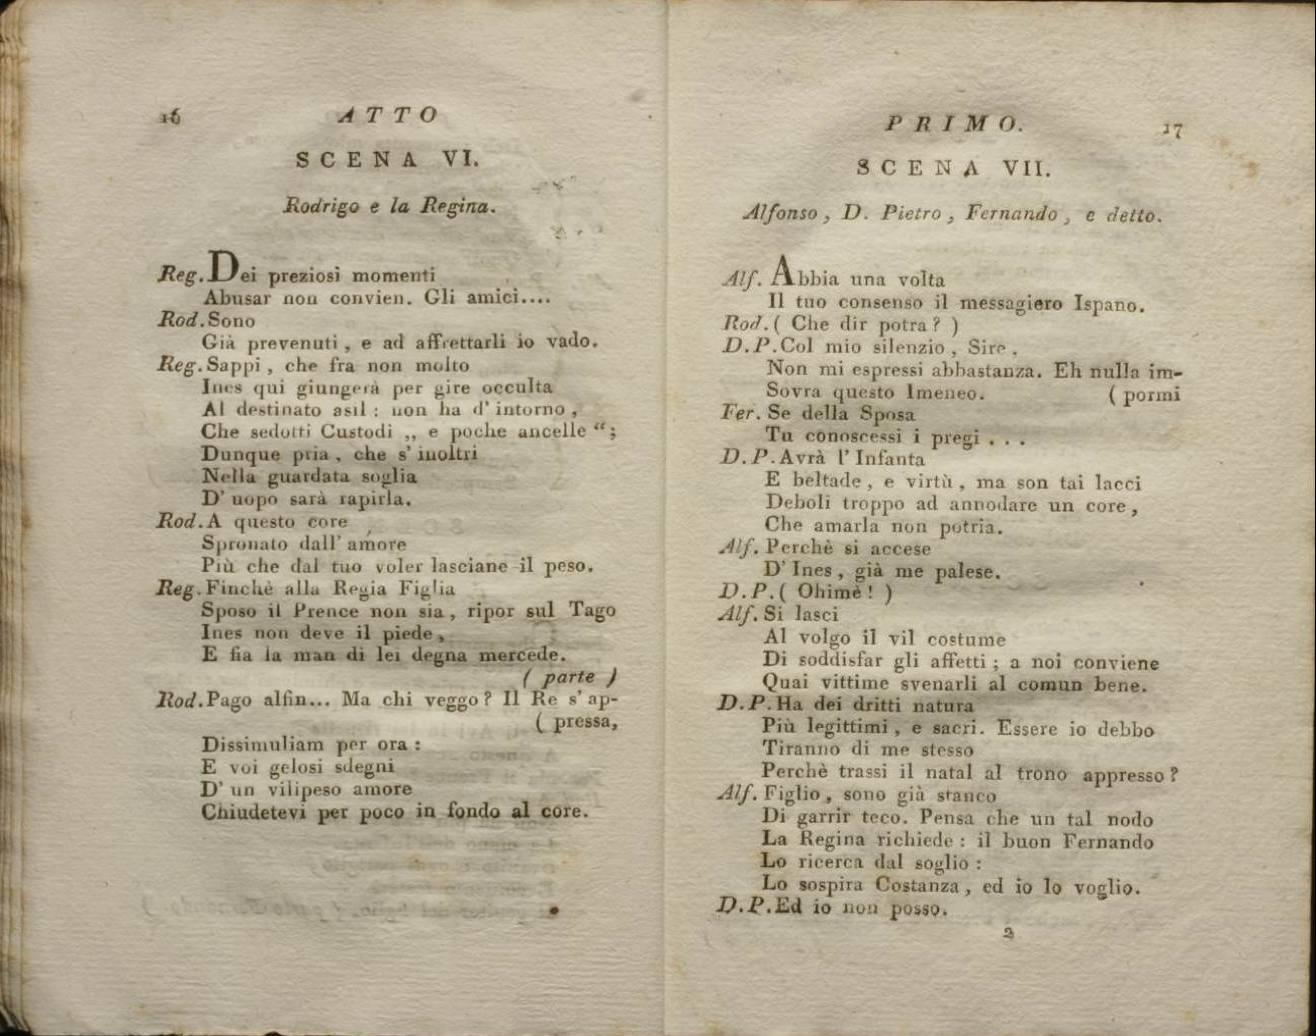 16
ATTO
SCENA VI.
Rodrigo e la Regina.
Reg. Dei preziosi momenti
Abusar non convien. Gli amici....
Rod. Sono
Già prevenuti, e ad affrettarli io vado.
Reg. Sappi, che fra non molto
Ines qui giungerà per gire occulta
Al destinato asil: non ha d'intorno,
Che sedotti Custodi ,, e poche ancelle “;
Dunque pria, che s'inoltri
Nella guardata soglia
D'uopo sarà rapirla.
Rod. A questo core
Spronato dall'amore
Più che dal tuo voler lasciane il peso.
Reg. Finchè alla Regia Figlia
Sposo il Prence non sia, ripor sul Tago
Ines non deve il piede,
E fia la man di lei degna mercede.
( parte )
Rod. Pago alfin... Ma chi veggo? Il Re s'ap-
( pressa,
Dissimuliam per ora:
E voi gelosi sdegni
D'un vilipeso amore
Chiudetevi per poco in fondo al core.
PRIMO.
17
SCENA VII.
Alfonso, D. Pietro, Fernando, e detto.
Alf. Abbia una volta
Il tuo consenso il messagiero Ispano.
Rod. ( Che dir potra? )
D.P. Col mio silenzio, Sire,
Non mi espressi abbastanza. Eh nulla im-
Sovra questo Imeneo. ( pormi
Fer. Se della Sposa
Tu conoscessi i pregi . . .
D.P. Avrà l'Infanta
E beltade, e virtù, ma son tai lacci
Deboli troppo ad annodare un core,
Che amarla non potria.
Alf. Perchè si accese
D'Ines, già me palese.
D.P. ( Ohimè! )
Alf. Si lasci
Al volgo il vil costume
Di soddisfar gli affetti; a noi conviene
Quai vittime svenarli al comun bene.
D.P. Ha dei dritti natura
Più legittimi, e sacri. Essere io debbo
Tiranno di me stesso
Perchè trassi il natal al trono appresso?
Alf. Figlio, sono già stanco
Di garrir teco. Pensa che un tal nodo
La Regina richiede: il buon Fernando
Lo ricerca dal soglio:
Lo sospira Costanza, ed io lo voglio.
D.P. Ed io non posso.
2